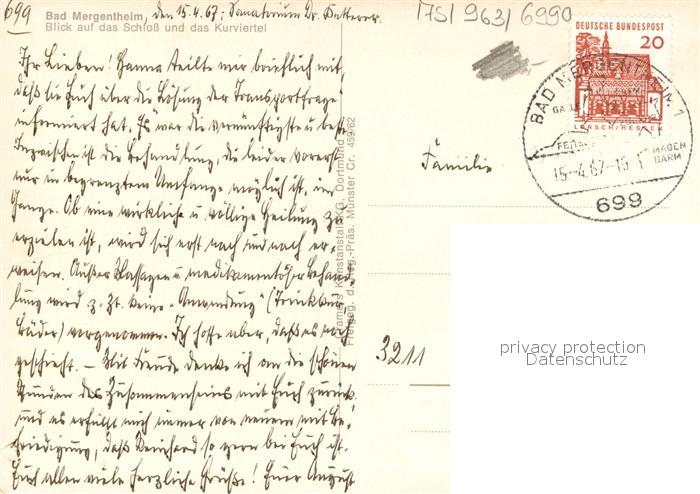 699
Bad Mergentheim, den 15.4.67; Sanatorium Dr.
Blick auf das Schloß und das Kurviertel
Ihr Lieben! Hanna teilte mir brieflich mit,
daß sie Euch über die Lösung der Transportfrage
informiert hat. Es war die vernünftigste u. beste.
Inzwischen ist die Behandlung, die leider vorerst
nur in begrenztem Umfange möglich ist, im
Gange. Ob eine wirkliche u. völlige Heilung zu
erzielen ist, wird sich erst nach und nach er-
weisen. Außer Massagen u. medikamentöser Behand-
lung wird z. Zt. keine „Anwendung" (Trinkkur,
Bäder) vorgenommen. Ich hoffe aber, daß es noch
geschieht. – Mit Freude denke ich an die schönen
Stunden des Zusammenseins mit Euch zurück
und es erfüllt mich immer von neuem mit Be-
friedigung, daß Reinhard so gern bei Euch ist.
Euch allen viele herzliche Grüße! Euer August
Cramers Kunstanstalt KG, Dortmund
Herg. d. Reg.-Präs. Münster Cr. 459/62
7751 963/6990
DEUTSCHE BUNDESPOST
20
LORSCH/HESSEN
BAD MERGENTHEIM 1
MAGEN
DARM
15.-4.67-16
699
Familie
3211
privacy protection
Datenschutz